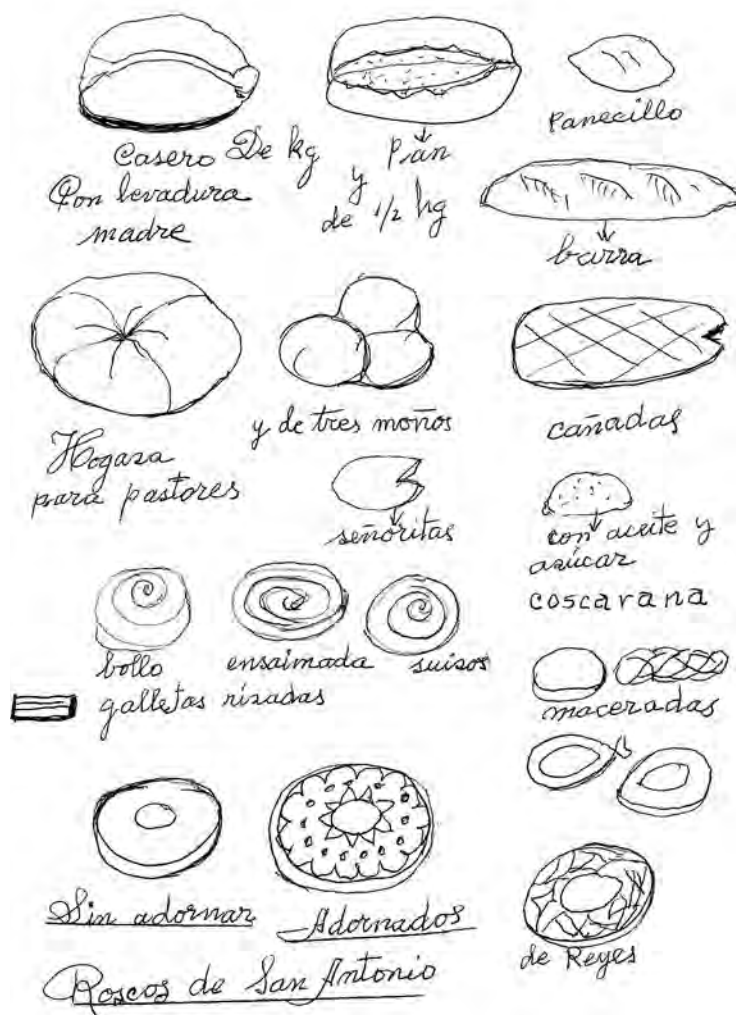 Panecillo
Casero De kg Pan
Con levadura y
madre de 1/2 kg
barra
Hogaza
para pastores
y de tres moños
cañadas
señoritas
con aceite y
azúcar
coscarana
bollo ensaimada suizos
galletas rizadas
maceradas
Sin adornar
Adornados
de Reyes
Roscos de San Antonio